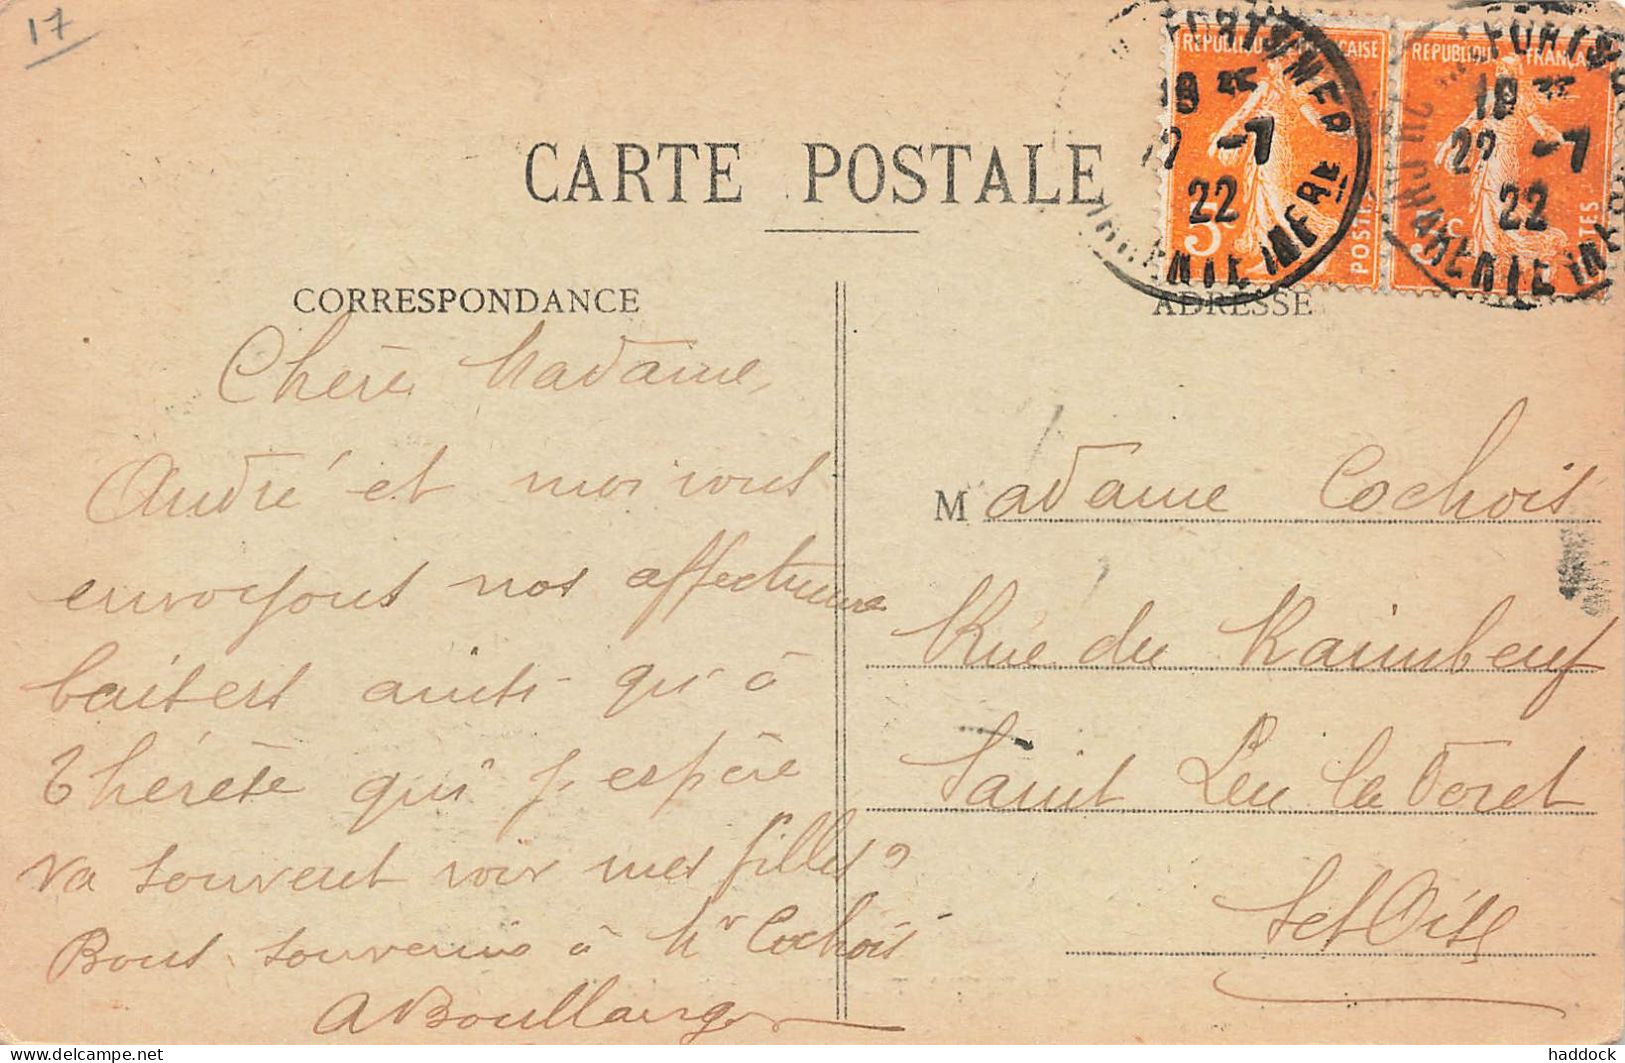 17
CARTE POSTALE
REPUBLIQUE FRANÇAISE
5c
POSTES
REPUBLIQUE FRANÇAISE
5c
POSTES
18
22 -7
22
CHARENTE INFRE
18
22 -7
22
CHARENTE INFRE
CORRESPONDANCE
Chère Madame,
André et moi vous
envoyons nos affectueux
baisers ainsi qu'à
Thérèse qui j'espère
va souvent voir mes filles
Bons souvenirs à Mr Cochois
A Boullanger
ADRESSE
Madame Cochois
Rue du Raimbeuf
Saint Leu la Foret
S et Oise
haddock